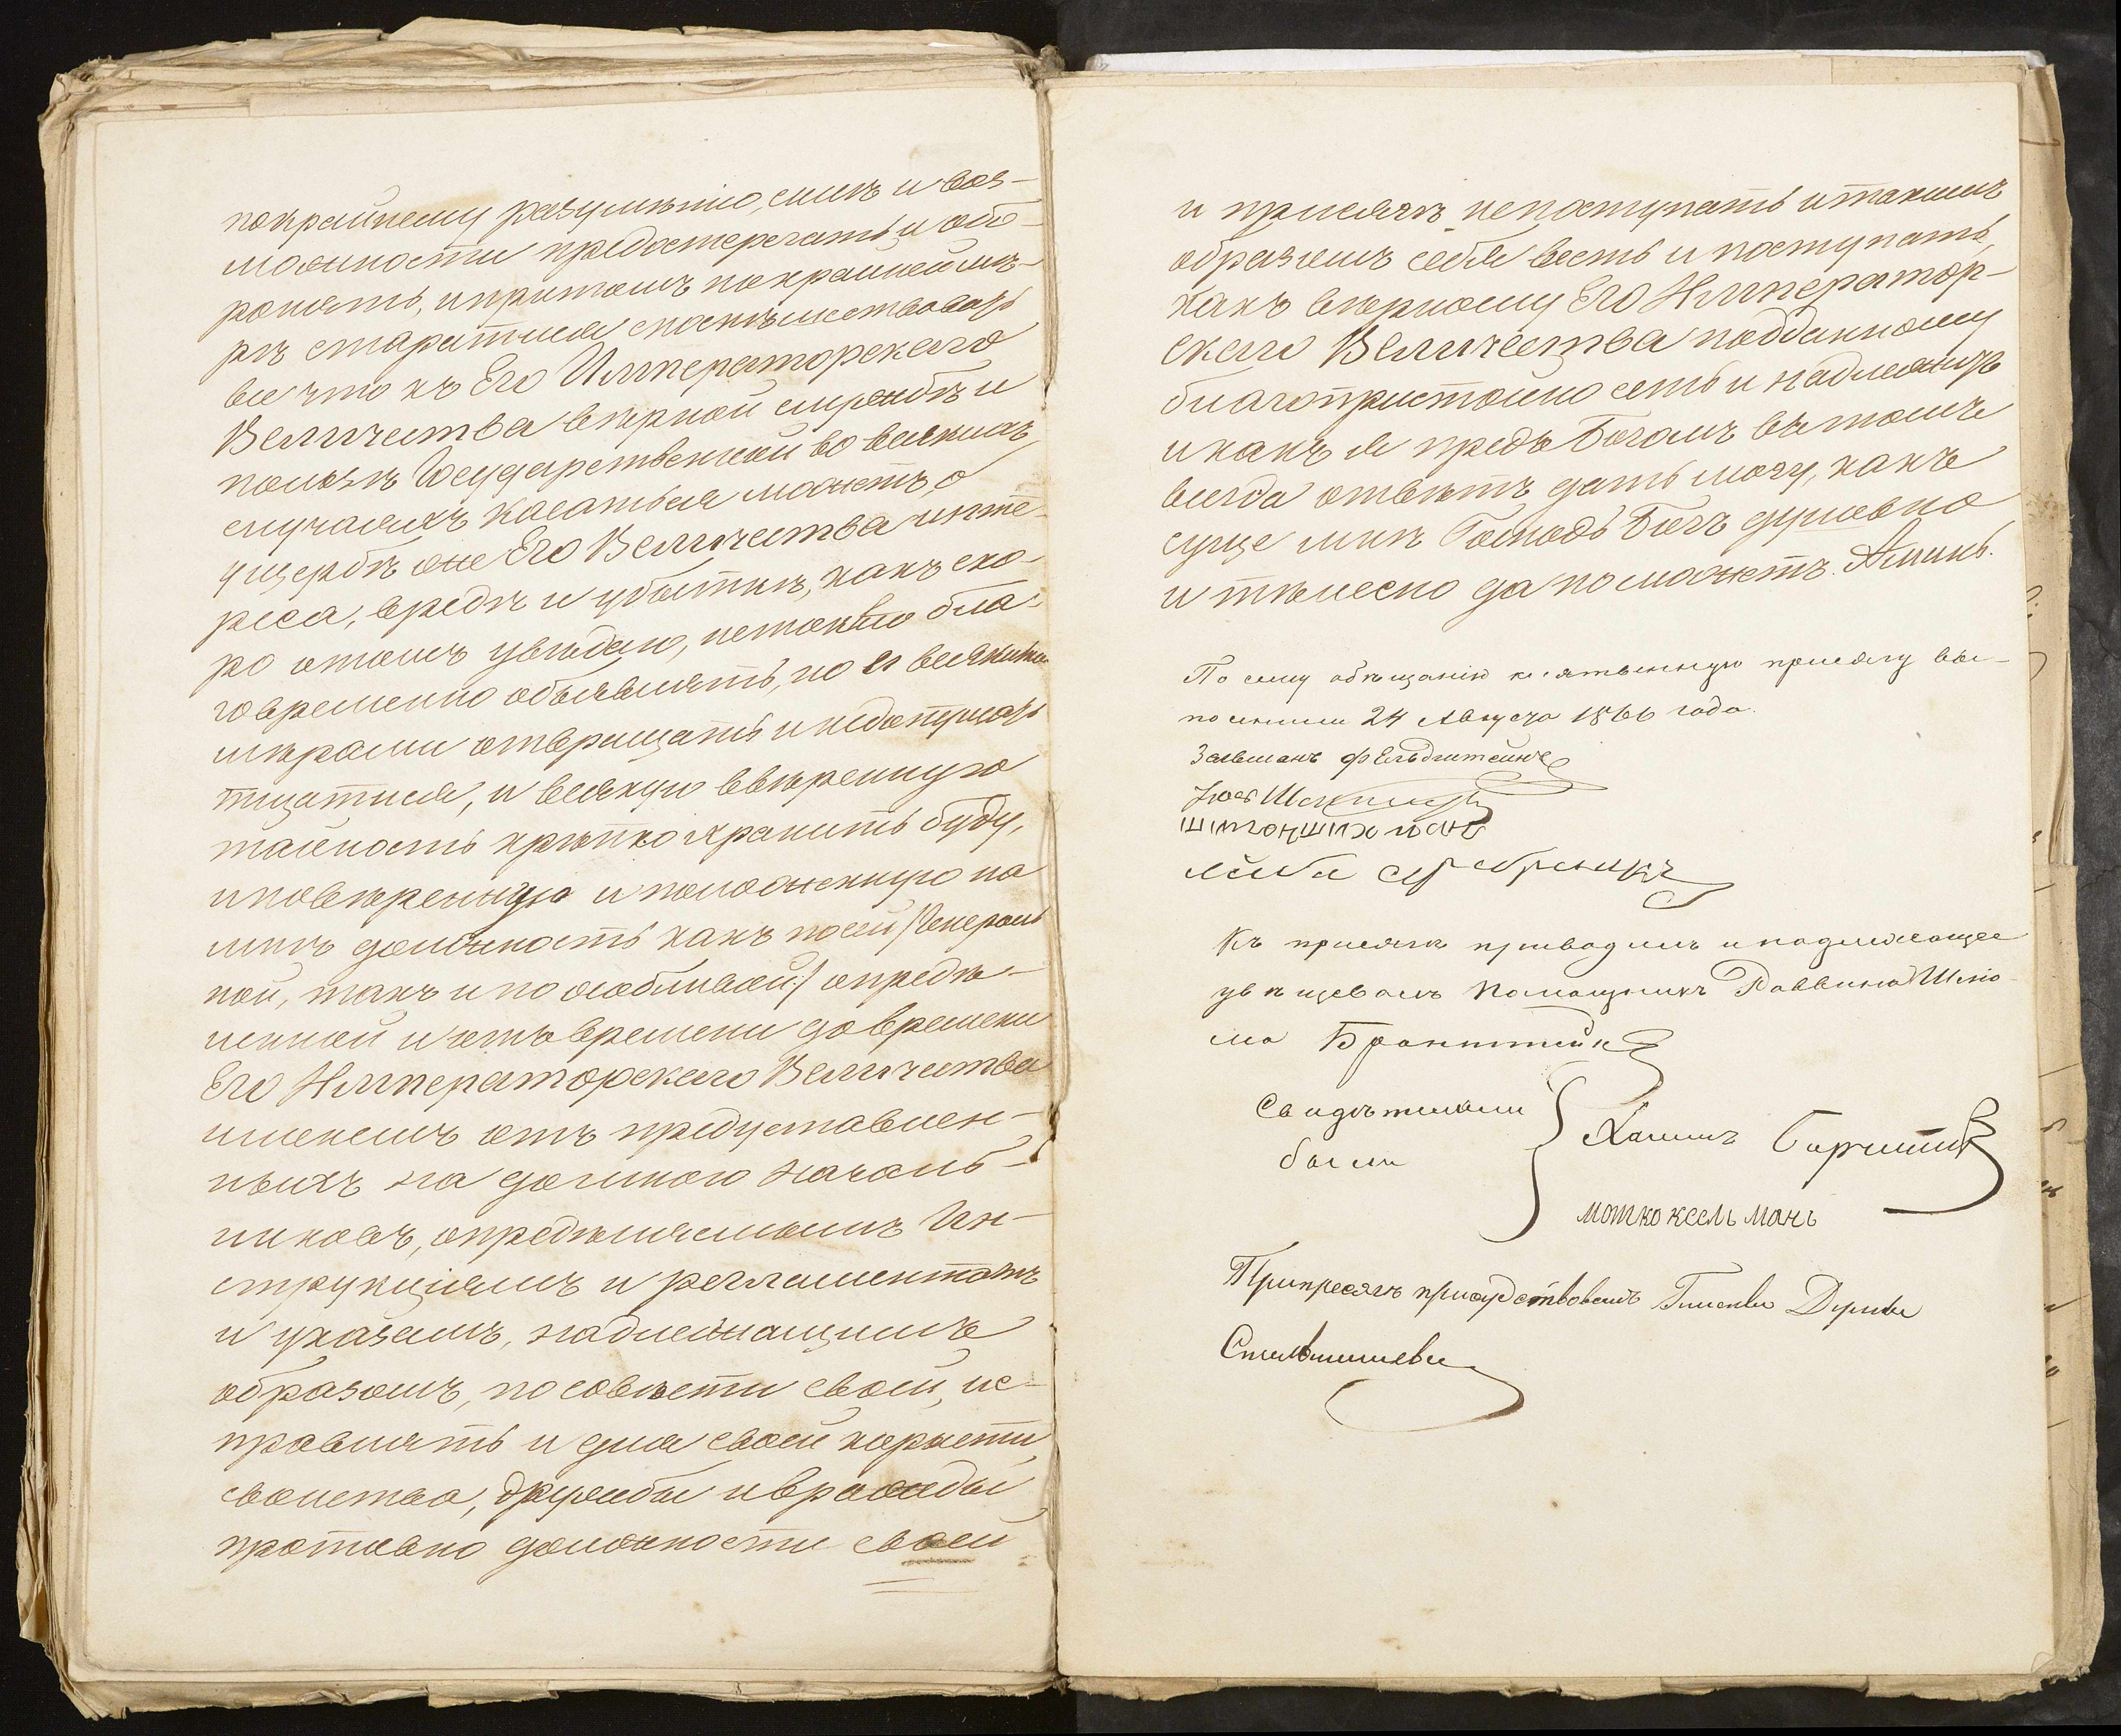 покрайнему разумѣнію, силѣ и воз-
можности предостерегать и обо-
ронять, и притомъ по крайней мѣ-
рѣ старатися споспѣшествовать
все что къ Его Императорскаго
Величества вѣрной службѣ и
пользѣ Государственной во всякихъ
случаяхъ касаться можетъ, о
ущербѣ же Его Величества инте-
реса, вредѣ и убыткѣ, какъ ско-
ро отомъ увѣдаю, нетокмо бла-
говременно объявлять, но и всякими
мѣрами отвращать и недопущать
тщатися, и всякую ввѣренную
тайность крѣпко хранить буду,
и повѣренную и положенную на
мнѣ должность какъ посей /Генераль
ной, такъ и по особливой:/ опредѣ-
ленной и отъ времени до времени
Его Императорскаго Величества
именемъ отъ предуставлен-
ныхъ на до мною Началь-
никовъ, опредѣляемымъ Ин-
струкціямъ и регламентамъ
и указамъ, надлежащимъ
образомъ, по совѣсти своей, ис-
правлять и для своей корысти,
свойства, дружбы и вражды
противно должности своей
и присяги не поступать и такимъ
образомъ себя весть и поступать,
какъ вѣрному Его Император-
скаго Величества подданному
благопристойно есть и надлежитъ
и какъ я предъ Богомъ въ томъ
всегда отвѣтъ дать могу, какъ
суще мнѣ Господь Богъ душевно
и тѣлесно да поможетъ. Аминь.
По сему обѣщанію клятвенную присягу вы-
полнили 24 Августа 1866 года.
Зельманъ Фельдштейнъ
Къ присягѣ приводилъ и надлежащее
увѣщевалъ Помощникъ Раввина Шлио-
ма Бронштейнъ
Свидѣтелями
были
Хаимъ
мотко ксельманъ
При присягѣ присудствовалъ Гласный Думы